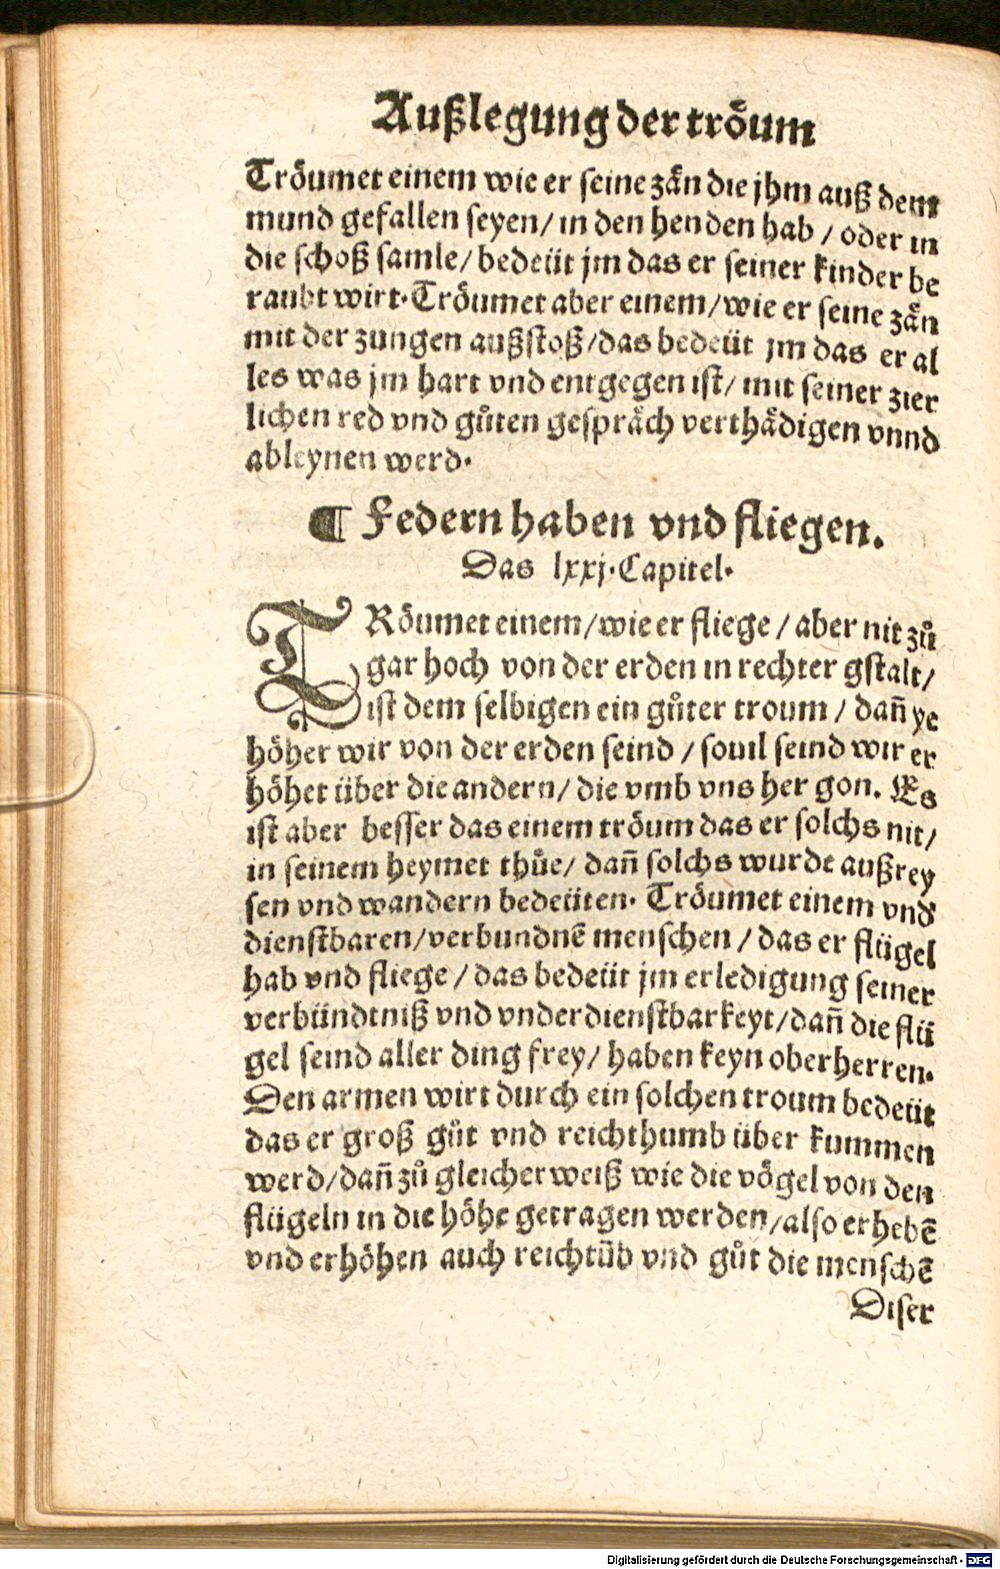 Außlegung der trőum
Trőumet einem wie er seine zån die jhm auß dem
mund gefallen seyen/ in den henden hab / oder in
die schoß samle/ bedeüt jm das er seiner kinder be
raubt wirt. Trőumet aber einem/ wie er seine zån
mit der zungen außstoß/ das bedeüt jm das er al
les was jm hart vnd entgegen ist/ mit seiner zier
lichen red vnd gůten gespråch verthådigen vnnd
ableynen werd.
¶ Federn haben vnd fliegen.
Das lxxj. Capitel.
TRőumet einem/ wie er fliege / aber nit zů
gar hoch von der erden in rechter gstalt/
ist dem selbigen ein gůter troum / dañ ye
höher wir von der erden seind / souil seind wir er
höhet über die andern/ die vmb vns her gon. Es
ist aber besser das einem trőum das er solchs nit/
in seinem heymet thůe/ dañ solchs wurde außrey
sen vnd wandern bedeüten. Trőumet einem vnd
dienstbaren/ verbundnẽ menschen / das er flügel
hab vnd fliege / das bedeüt jm erledigung seiner
verbündtniß vnd vnderdienstbarkeyt/ dañ die flü
gel seind aller ding frey/ haben keyn oberherren.
Den armen wirt durch ein solchen troum bedeüt
das er groß gůt vnd reichthumb über kummen
werd/ dañ zů gleicher weiß wie die vögel von den
flügeln in die höhe getragen werden/ also erhebẽ
vnd erhöhen auch reichtüb vnd gůt die menschẽ
Diser
Digitalisierung gefördert durch die Deutsche Forschungsgemeinschaft - DFG